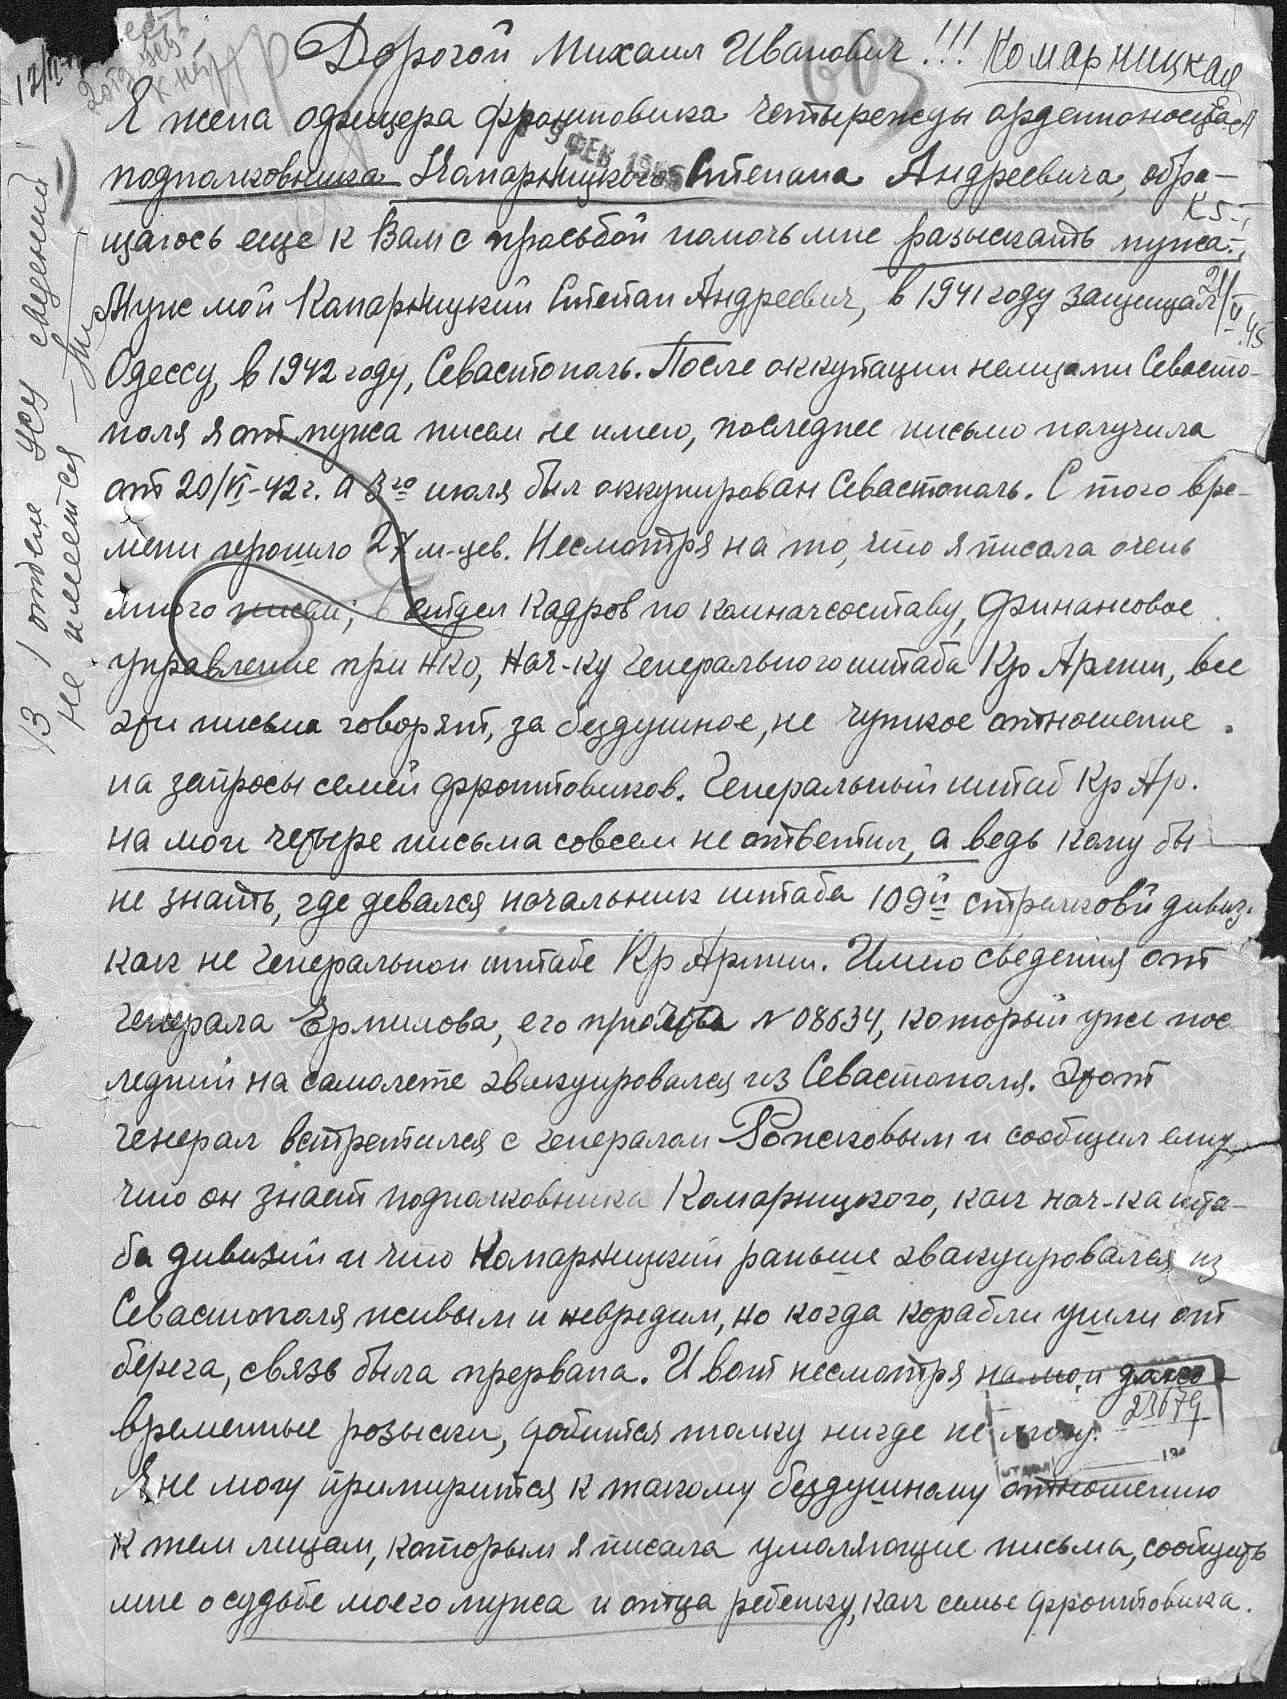 Дорогой Михаил Иванович!!! Комарницкая
Я жена офицера фронтовика четырежды орденоносца
подполковника Комарницкого Степана Андреевича, обра-
щаюсь еще к Вам с просьбой помочь мне разыскать мужа.
Муж мой Комарницкий Степан Андреевич, в 1941 году защищал
Одессу, в 1942 году, Севастополь. После оккупации немцами Севасто-
поля я от мужа писем не имею, последнее письмо получила
от 20/VI-42 г. а 3го июля был оккупирован Севастополь. С того вре-
мени прошло 27 м-цев. Несмотря на то, что я писала очень
много писем; в отдел кадров по комначсоставу, Финансовое
управление при НКО, Нач-ку Генерального штаба Кр Армии, все
эти письма говорят, за бездушное, не чуткое отношение
на запросы семей фронтовиков. Генеральный штаб Кр Ар.
на мои четыре письма совсем не ответил, а ведь кому бы
не знать, где девался начальник штаба 109й стрелковй дивиз.
как не Генеральном штабе Кр Армии. Имею сведения от
Генерала Ермилова, его N 08634, который уже пос
ледний на самолете эвакуировался из Севастополя. Этот
генерал встретился с генералом и сообщил ему,
что он знает подполковника Комарницкого, как нач-ка шта-
ба дивизии и что Комарницкий раньше эвакуировался из
Севастополя живым и невредим, но когда корабли ушли от
берега, связь была прервана. И вот несмотря на мои долго-
временные розыски, добится толку нигде не могу.
Я не могу примирится к такому бездушному отношению
к тем лицам, которым я писала умоляющие письма, сообщить
мне о судьбе моего мужа и отца ребенку, как семье фронтовика.
В 1 отделе УСУ сведений
не имеется
603
ФЕВ 1945
23679